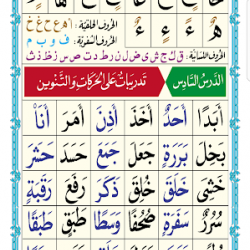 هُ ءٌ ءً ءٍ
الحُرُوفُ الحَلْقِيَّة: ا ه ع ح غ خ
الحُرُوفُ الشَّفَوِيَّة: ف و ب م
الحُرُوفُ اللِّسَانِيَّة: ق ك ج ش ي ض ل ن ر ط د ت ص س ز ظ ذ ث
الدَّرسُ السَّادِس تَدرِيبَاتٌ عَلَى الحَرَكَاتِ وَالتَّنوِين
أَبَدًا أَحَدٌ أَخَذَ أَذِنَ أَمَرَ أَنَا
بَخِلَ بَرَرَةٍ جَعَلَ جَمَعَ حَسَدَ حَشَرَ
خَشِيَ خَلَقَ خُلِقَ ذَكَرَ رَفَعَ رَقَبَةٍ
سُرُرٌ سَفَرَةٍ صُحُفًا وَسَطًا طَبَقٍ طَبَقًا